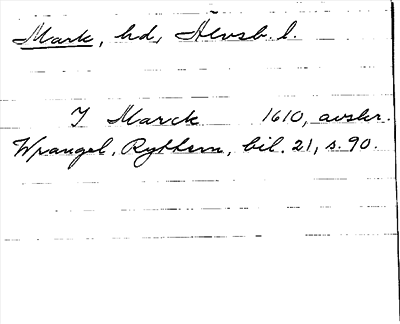 Mark, hd, Älvsb. l.
I Marck 1610, avskr.
Wrangel, Ryttern, bil. 21, s. 90.